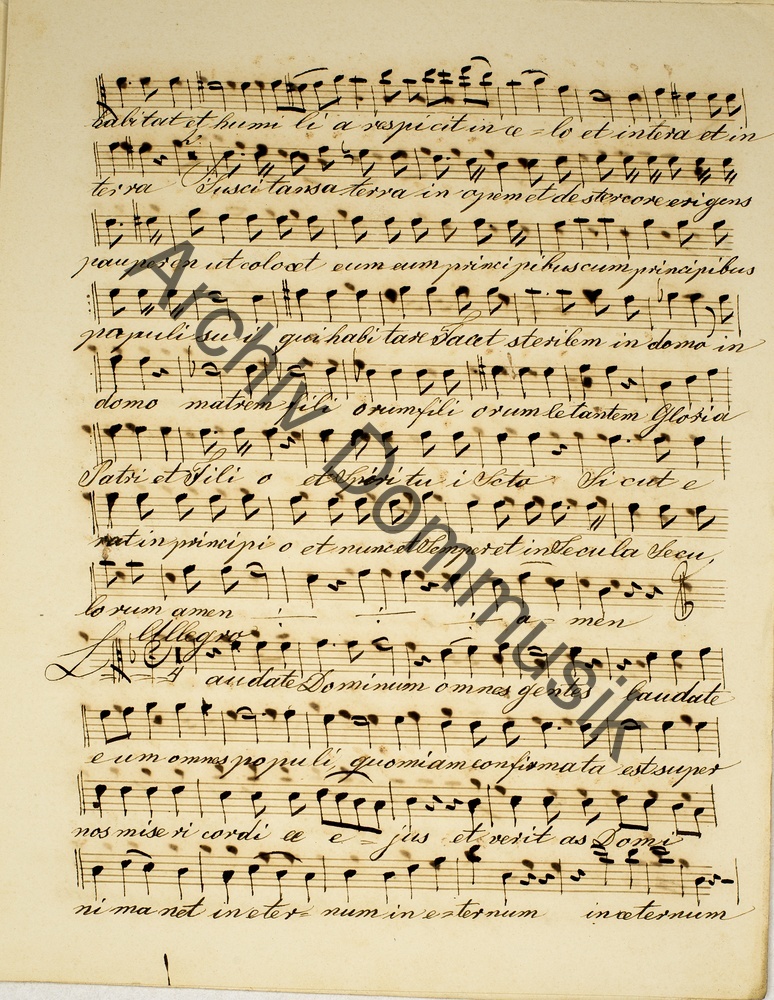 habitat et humi li a respicit in ce = lo et in tera et in
terra Suscitansa terra in opem et de stercore erigens
pauperen ut colocet eum eum principibus cum principibus
populi su i qui habi tare Facit sterilem in domo in
domo matrem fili orum fili orum letantem Gloria
Patri et Fili o et Spiri tu i Scto Si cut e
rat in principi o et nunc et Semper et in Secula Secu,
lo rum amen a = men
Allegro
L audate Dominum omnes gentes laudate
e um omnes populi quomiam confirmata est super
nos mise ri cordi æ e = jus et verit as Domi
ni ma net in eter = num in e = ternum in œternum
Archiv Dommusik